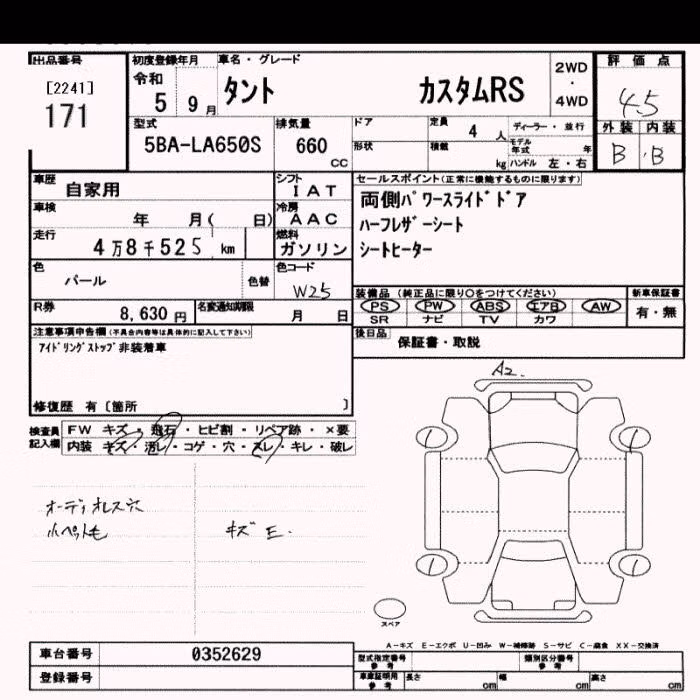 出品番号
[2241]
171
初度登録年月
令和
5 9月
車名・グレード
タント カスタムRS
2WD
・
4WD
評価点
4.5
型式
5BA-LA650S
排気量
660
CC
ドア
形状
定員
4 人
積載
kg
ディーラー・並行
モデル年式 年
ハンドル 左・右
外装 内装
B B
車歴
自家用
シフト
IAT
車検
年 月( 日)
冷房
AAC
走行
4万8千525 km
燃料
ガソリン
色
パール
色替
色コード
W25
R券
8,630円
名変通知期限
月 日
セールスポイント(正常に機能するものに限ります)
両側パワースライドドア
ハーフレザーシート
シートヒーター
装備品(純正品に限り○をつけてください)
PS PW ABS エアB AW
SR ナビ TV カワ
新車保証書
有・無
後日品
保証書・取説
注意事項申告欄(不具合内容等は具体的に記入して下さい)
アイドリングストップ非装着車
修復歴 有〔箇所 〕
検査員
記入欄
FW キズ・飛石・ヒビ割・リペア跡・×要
内装 キズ・汚レ・コゲ・穴・スレ・キレ・破レ
オーディオレス穴
小ペット毛
キズ E.
A2.
1
1
1
1
スペア
A-キズ E-エクボ U-凹み W-補修跡 S-サビ C-腐食 XX-交換済
車台番号
0352629
登録番号
型式指定番号
参考
類別区分番号
参考
車庫証明用
参考
長さ cm
幅 cm
高さ cm